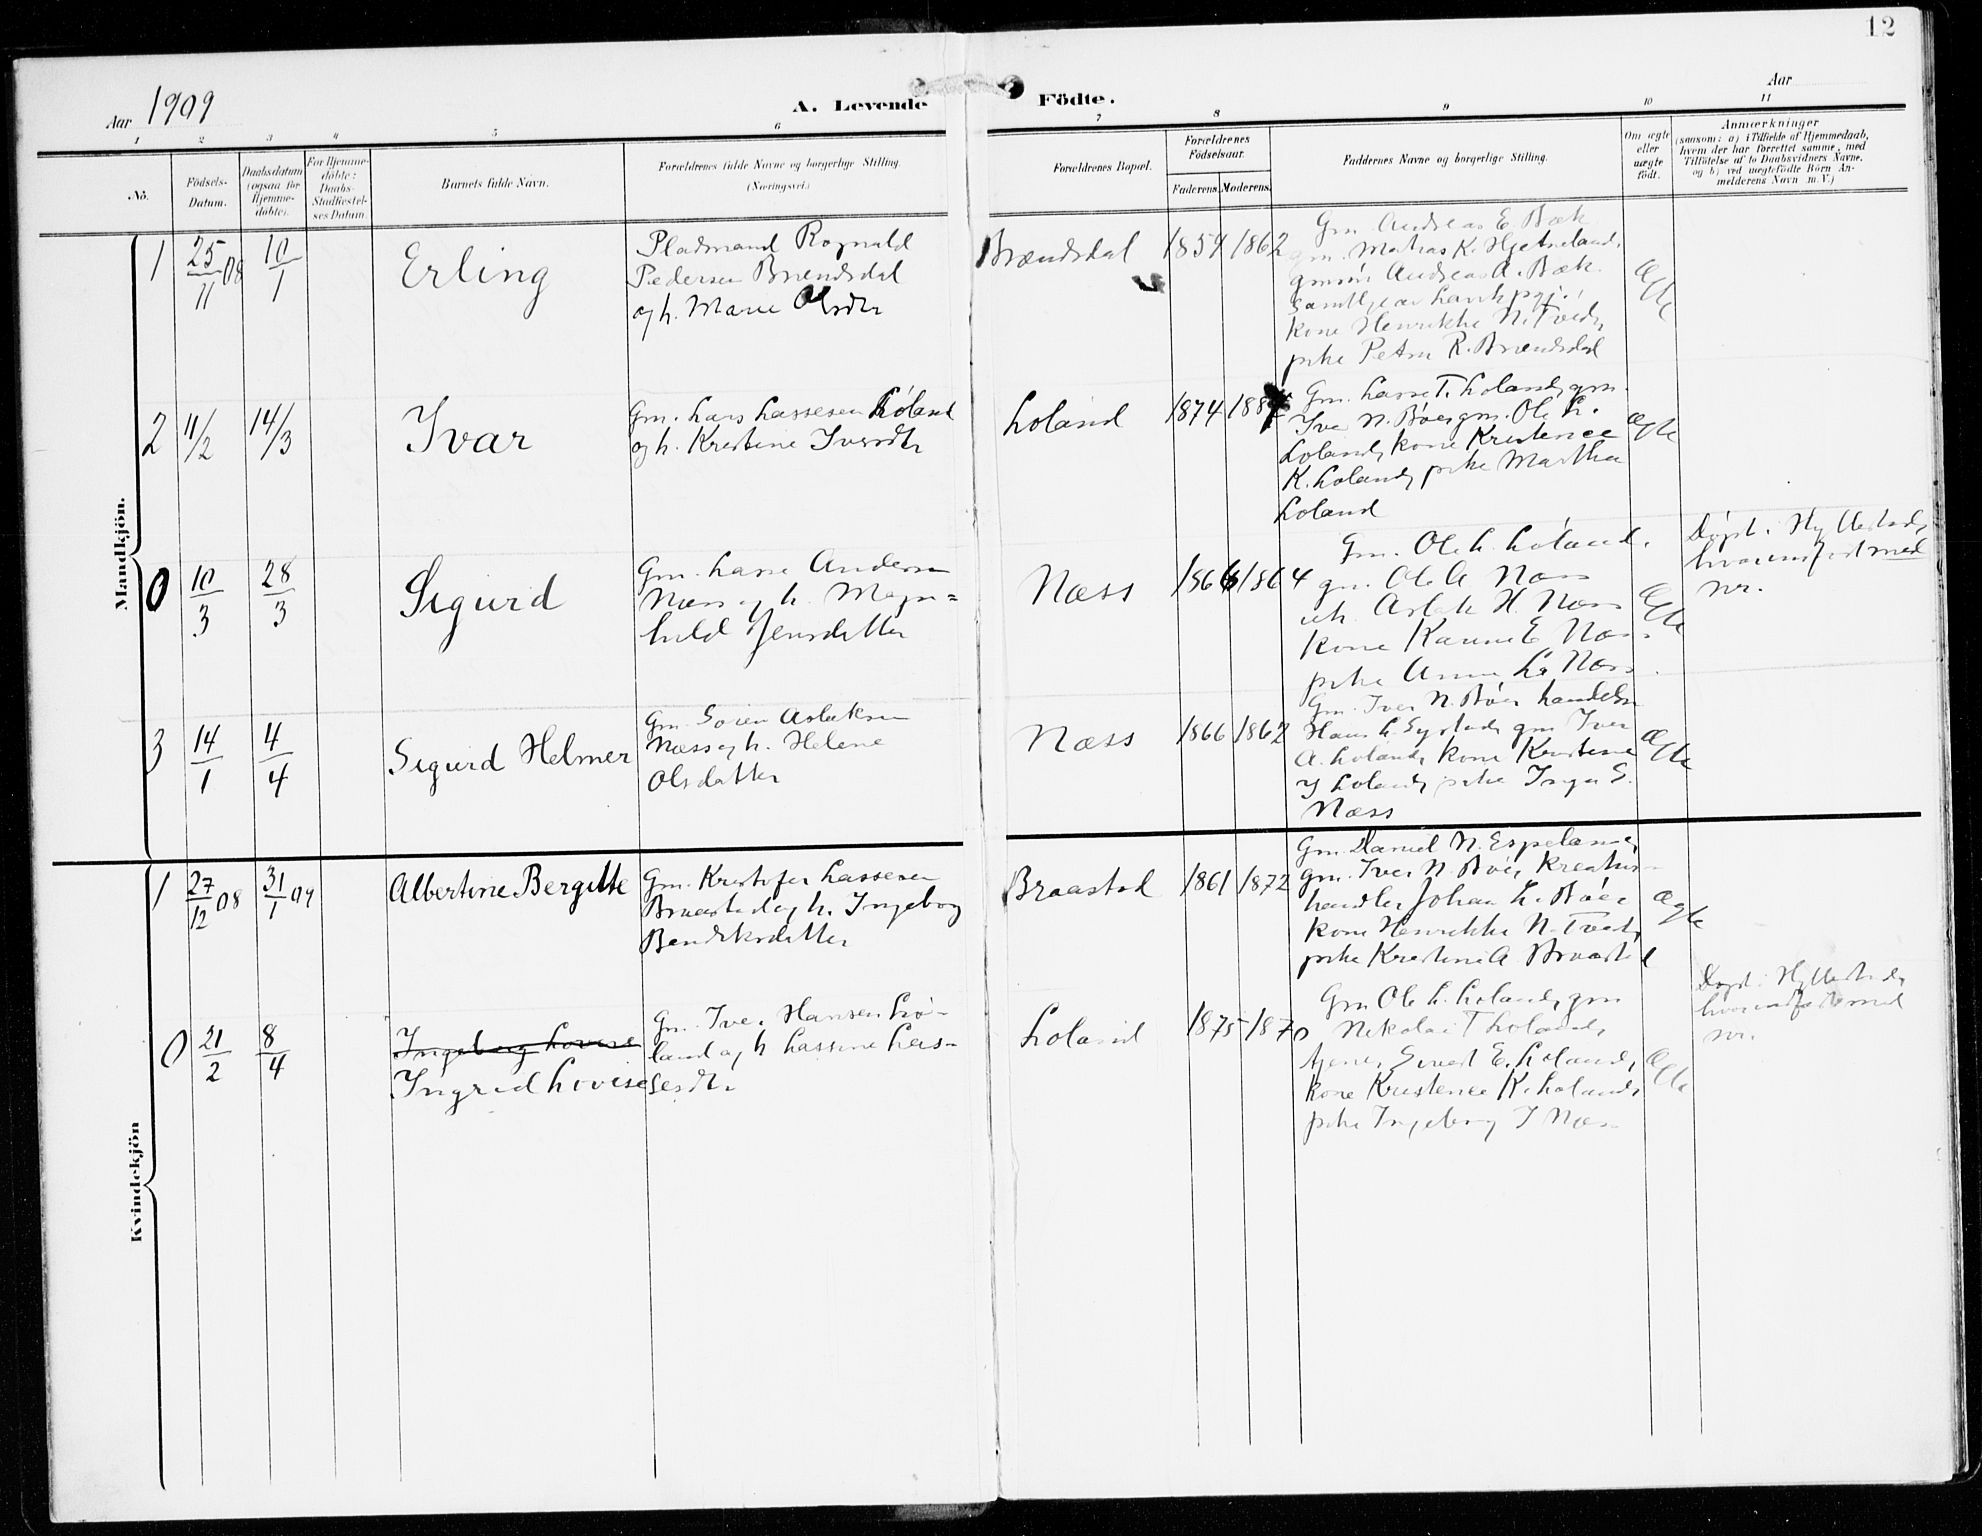 12
Aar 1909
A. Levende Födte.
Aar
1 2 3 4 5 6 7 8 9 10 11
No.
Födsels-Datum.
Daabsdatum (ogsaa for Hjemme-döbte).
For Hjemme-döbte: Daabs-Stadfæstel-ses Datum.
Barnets fulde Navn.
Forældrenes fulde Navne og borgerlige Stilling. (Næringsvei.)
Forældrenes Bopæl.
Forældrenes Födselsaar.
Faderens. Moderens.
Faddernes Navne og borgerlige Stilling.
Om ægte eller uægte födt.
Anmærkninger
(saasom: a) i Tilfælde af Hjemmedaab,
hvem der har forrettet samme, med
Tilföielse af to Daabsvidners Navne,
og b) ved uægtefödte Börn An-
melderens Navn m. V.)
Mandkjön.
1 25/11 08 10/1
Erling
Pladsmand Rognald
Pedersen Brændsdal
og h. Marie Olsdtr
Brændsdal
1859 1862
Gm. Andreas E. Bæk
gm. Matias K. Hjetneland,
Andreas A. Bæk
kone Henrikke N. Tveit,
pike Petra R. Brændsdal
Ægte
2 11/2 14/3
Ivar
Gm. Lars Lassesen Löland
og h. Kristine Iversdtr
Loland
1874
Gm. Lasse T. Loland, gm.
Iver N. Böe, gm. Ole L.
Loland, kone Kristence
K. Loland, pike Martha
Loland
Ægte
0 10/3 28/3
Sigurd
Gm. Lasse Andersen
Næss og h. Magn=
hild Jensdatter
Næss
1866 1864
Gm. Ole L. Löland,
gm. Ole A Næss
Aslak H. Næss
kone E Næss
pike Anna L. Næss
Ægte
Döpt i Hyllestad,
hvor indfört med
nr.
3 14/1 4/4
Sigurd Helmer
Gm. Sören Aslaksen
Næss og h. Helene
Olsdatter
Næss
1866 1862
Gm. Iver N. Böe, handelsm
Hans L. Systad, gm Iver
A. Loland, kone Kristine
I Loland, pike Inga S.
Næss
Ægte
Kvindekjön
1 27/12 08 31/1 09
Albertine Bergitte
Gm. Kristofer Lassesen
Braastad og h. Ingeborg
Bendiksdatter
Braastad
1861 1872
Gm. Daniel N. Espeland,
gm. Iver N. Böe, kreatur-
handler Johan L. Böe
kone Henrikke N. Tveit,
pike Kristine A Braastad
Ægte
0 21/2 8/4
Ingeborg Lovise
Ingrid Lovise
Gm. Iver Hansen Lö-
land og h Lassine Las-
sesdtr
Loland
1875 1870
Gm Ole L. Loland, gm
Nikolai T Loland,
tjener Sivert E. Loland,
kone Kristence K. Loland,
pike Ingeborg I Næss
Ægte
Döpt i Hyllestad,
hvor indfört med
nr.